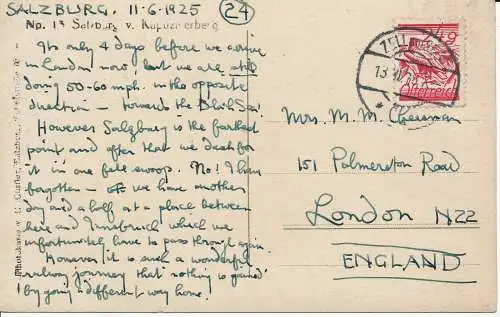 SALZBURG. 11-6-1925 (24)
No. 13 Salzburg v. Kapuzinerberg
It's only 4 days before we arrive
in London now, but we are still
doing 50-60 mph. in the opposite
direction — towards the Black Sea!
However Salzburg is the farthest
point and after that we dash for
it in one fell swoop. No! I have
forgotten — we have another
day and a half at a place between
here and Innsbruck which we
unfortunately have to pass through again.
However it is such a wonderful
railway journey that "nothing is gained"
by going a different way home.
Mrs. M. M. Cheesman
151 Palmerston Road
London N22
ENGLAND
ZELL
13 VI 25
Österreich